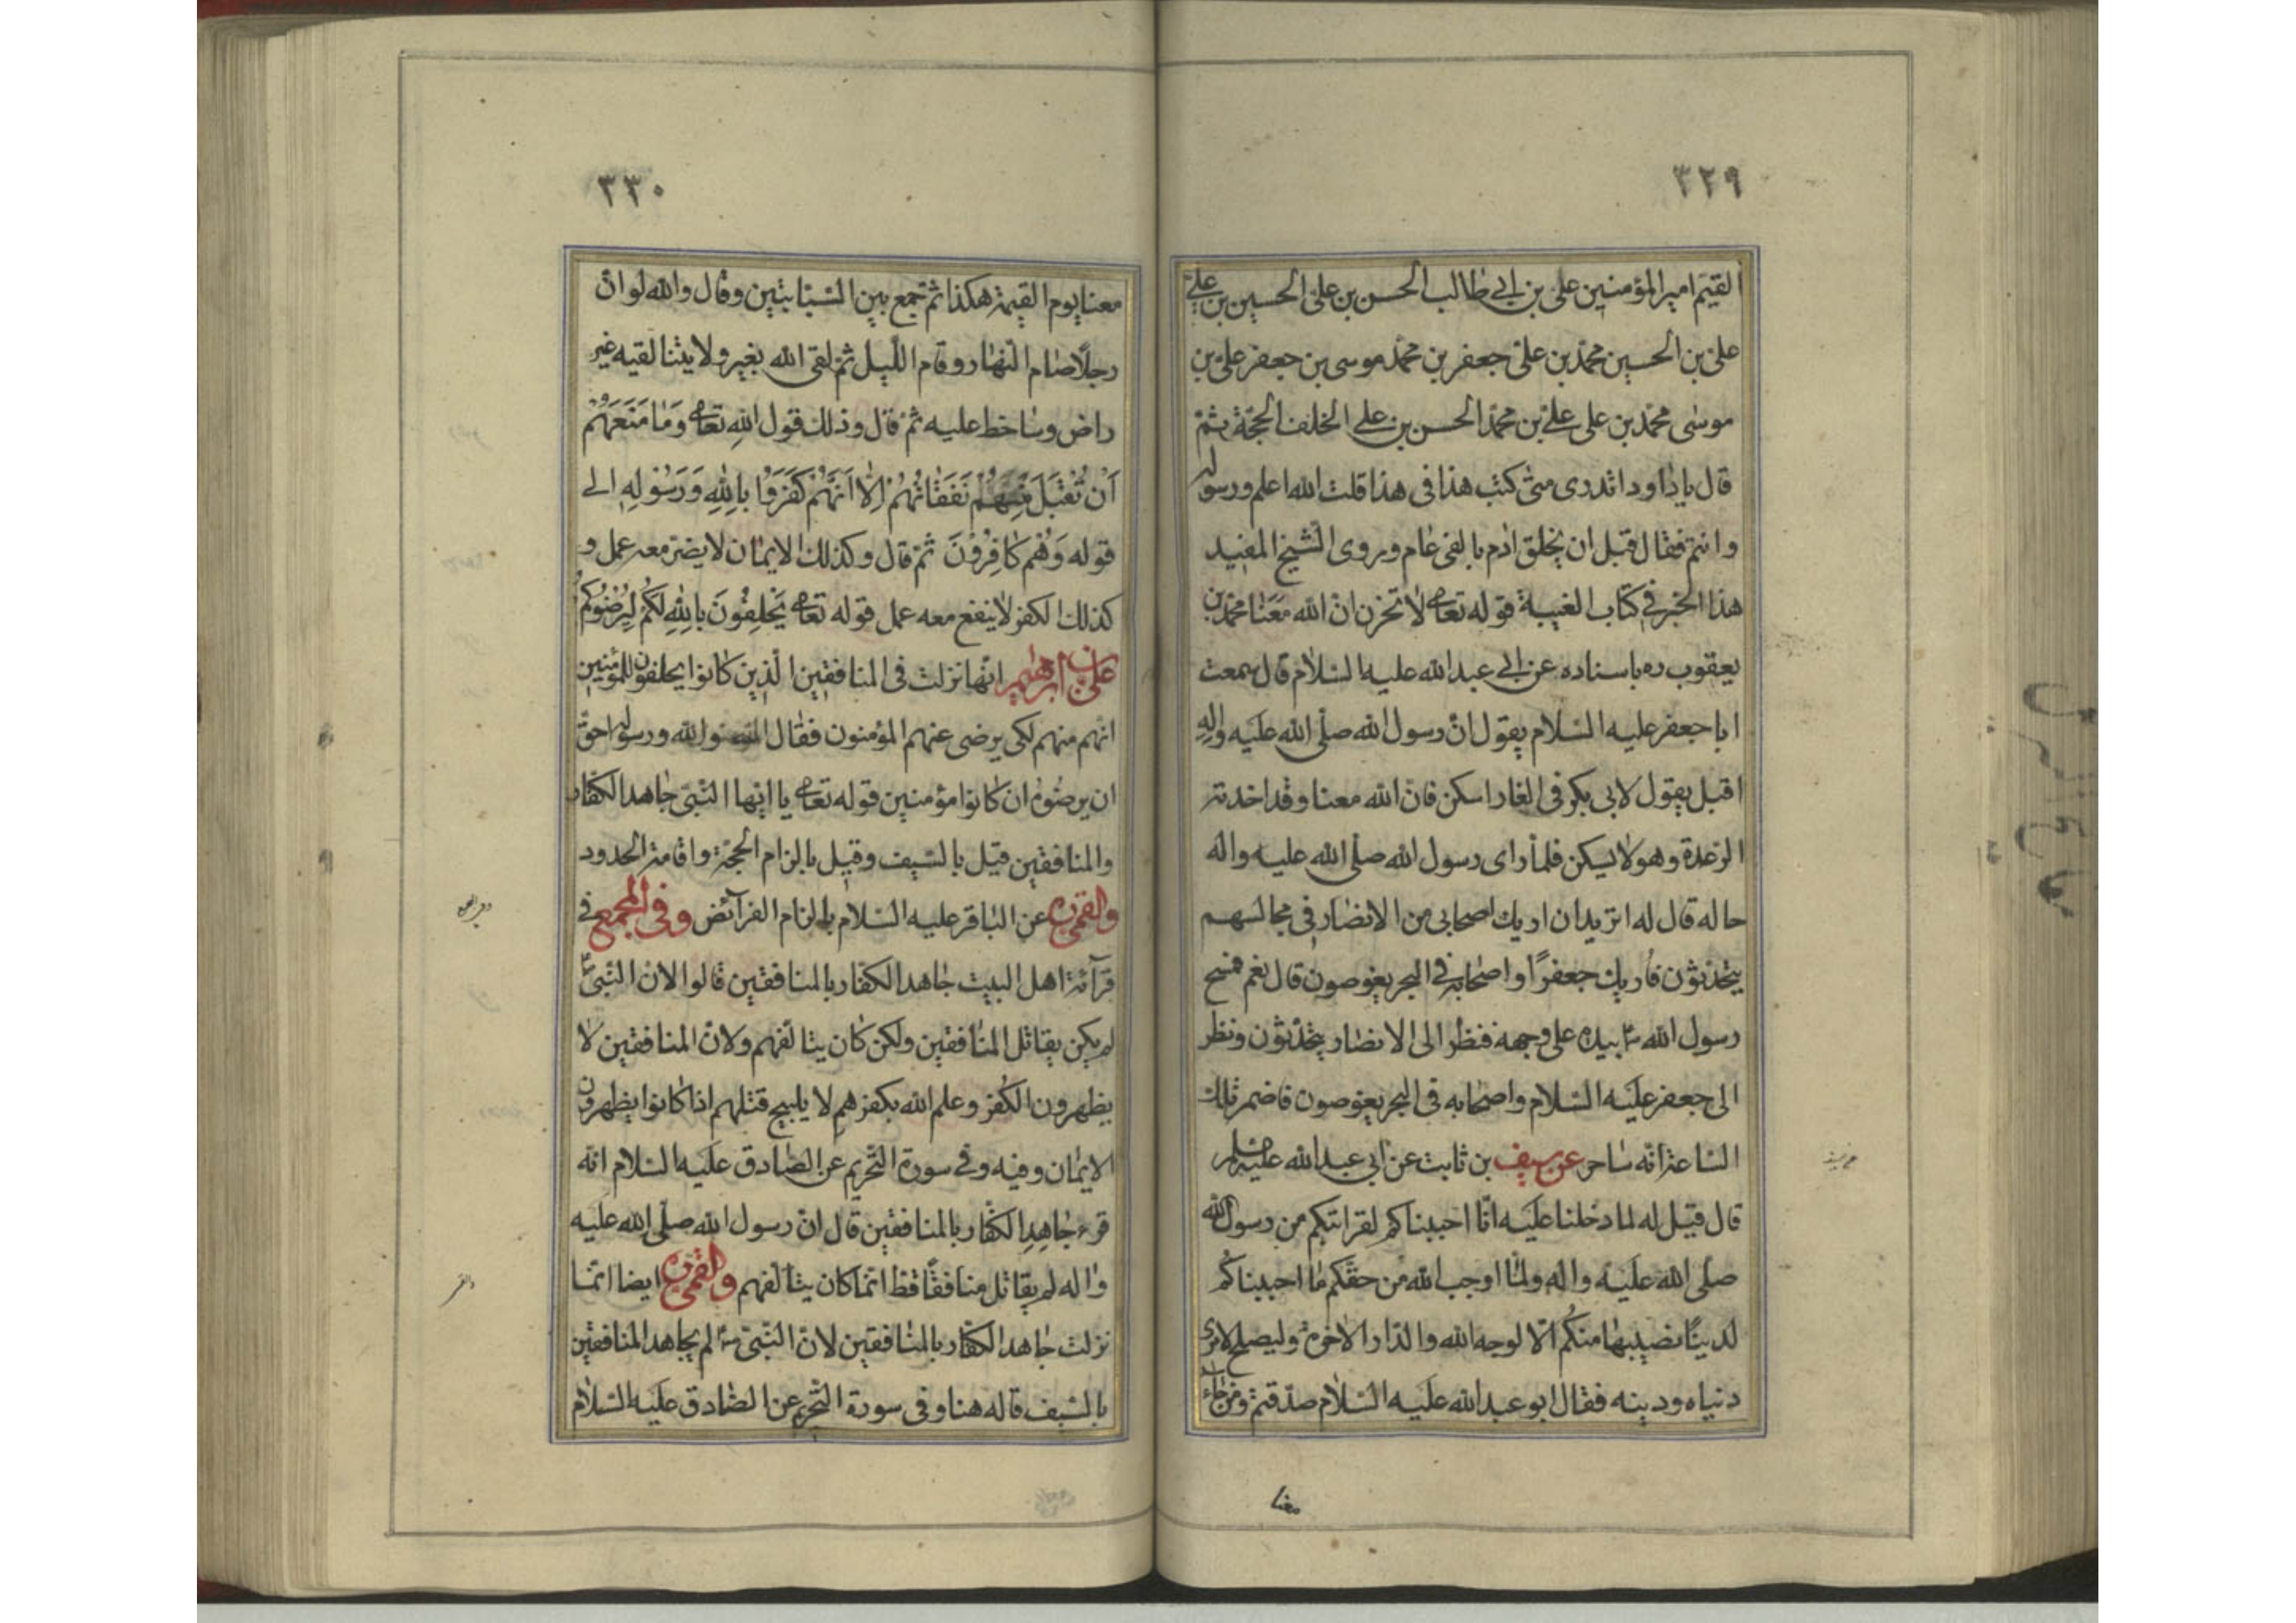 ٣٢٩
القيم امير المؤمنين علی بن ابی طالب الحسن بن علی الحسين بن علی
علی بن الحسين محمد بن علی جعفر بن محمد موسی بن جعفر علی بن
موسی محمد بن علی علی بن محمد الحسن بن علی الخلف الحجّة ثمّ
قال يا داود اتدری متی كتب هذا فی هذا قلت الله اعلم ورسوله
وانتم فقال قبل ان يخلق ادم بالفی عام وروی الشيخ المفيد
هذا الخبر فی كتاب الغيبة قوله تعالی لا تحزن انّ الله معنا محمد بن
يعقوب ره باسناده عن ابی عبد الله عليه السّلام قال سمعت
ابا جعفر عليه السّلام يقول انّ رسول الله صلّی الله عليه واله
اقبل يقول لابی بكر فی الغار اسكن فانّ الله معنا وقد اخذته
الرعدة وهو لا يسكن فلمّا رای رسول الله صلّی الله عليه واله
حاله قال له اتريد ان اريك اصحابی من الانصار فی مجالسهم
يتحدّثون فاريك جعفرًا واصحابه فی البحر يغوصون قال نعم فمسح
رسول الله ص بيده علی وجهه فنظر الی الانصار يتحدّثون ونظر
الی جعفر عليه السّلام واصحابه فی البحر يغوصون فاضمر تلك
السّاعة انّه ساحر عن سيف بن ثابت عن ابی عبد الله عليه السلم
قال قيل له لما دخلنا عليه انّا احببناكم لقرابتكم من رسول الله
صلّی الله عليه واله ولمّا اوجب الله من حقّكم ما احببناكم
لدنيا نصيبها منكم الّا لوجه الله والدّار الاخرة وليصلح لامرئ
دنياه ودينه فقال ابو عبد الله عليه السّلام صدقتم ومن جاء
معنا
٣٣٠
معنا يوم القيمة هكذا ثمّ جمع بين السّبّابتين وقال والله لو انّ
رجلًا صام النّهار وقام اللّيل ثمّ لقی الله بغير ولايتنا لقيه غير
راض وساخط عليه ثمّ قال وذلك قول الله تعالی وَمَا مَنَعَهُمْ
اَنْ تُقْبَلَ مِنْهُمْ نَفَقَاتُهُمْ اِلَّا اَنَّهُمْ كَفَرُوا بِاللهِ وَرَسُولِهِ الی
قوله وَهُمْ كَافِرُونَ ثمّ قال وكذلك الايمان لا يضرّ معه عمل و
كذلك الكفر لا ينفع معه عمل قوله تعالی يَحْلِفُونَ بِاللهِ لَكُمْ لِيُرْضُوكُمْ
علی بن ابراهيم انّها نزلت فی المنافقين الّذين كانوا يحلفون للمؤمنين
انّهم منهم لكی يرضی عنهم المؤمنون فقال الله والله ورسوله احقّ
ان يرضوه ان كانوا مؤمنين قوله تعالی يا ايّها النّبیّ جاهد الكفّار
والمنافقين قيل بالسّيف وقيل بالزام الحجّة واقامة الحدود
والقمّی ره عن الباقر عليه السّلام بالزام الفرائض وفی المجمع فی
قرائة اهل البيت جاهد الكفّار بالمنافقين قالوا لانّ النّبیّ ص
لم يكن يقاتل المنافقين ولكن كان يتالّفهم ولانّ المنافقين لا
يظهرون الكفر وعلم الله بكفرهم لا يبيح قتلهم اذا كانوا يظهرون
الايمان وفيه وفی سورة التّحريم عن الصّادق عليه السّلام انّه
قرء جَاهِدِ الكفّار بالمنافقين قال انّ رسول الله صلّی الله عليه
واله لم يقاتل منافقًا قط انّما كان يتالّفهم والقمّی ره ايضا انّما
نزلت جاهد الكفّار بالمنافقين لانّ النّبیّ ص لم يجاهد المنافقين
بالسّيف قاله هنا وفی سورة التّحريم عن الصّادق عليه السّلام